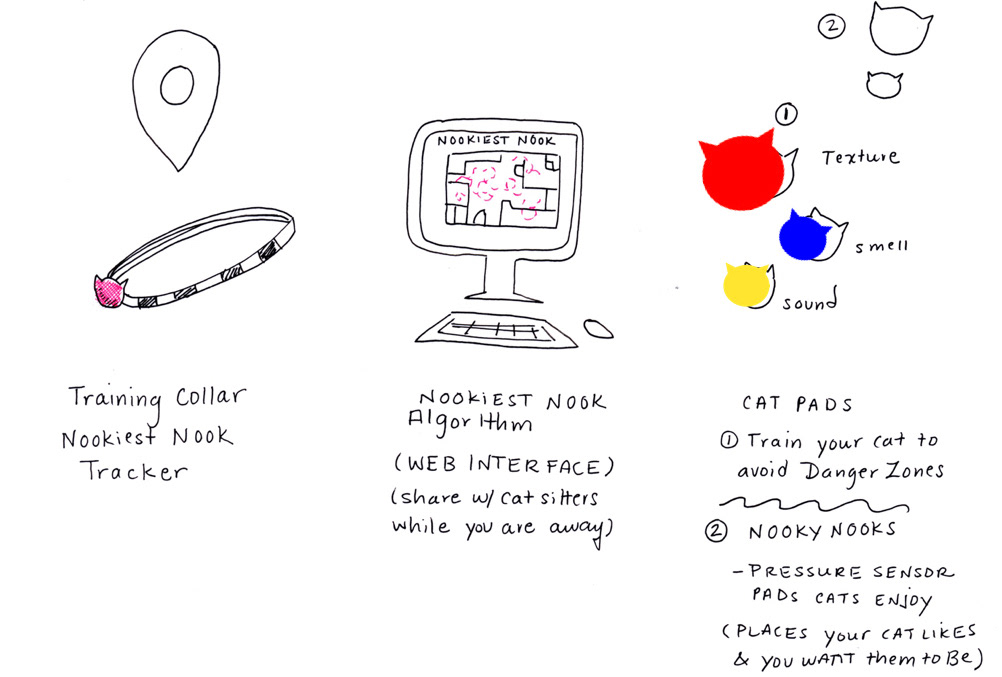 Training Collar
Nookiest Nook
Tracker
NOOKIEST NOOK
NOOKIEST NOOK
Algorithm
(WEB INTERFACE)
(share w/ cat sitters
while you are away)
2
1
Texture
smell
sound
CAT PADS
1 Train your cat to
avoid Danger Zones
2 NOOKY NOOKS
- PRESSURE SENSOR
PADS CATS ENJOY
(PLACES your CAT LIKES
& YOU WANT them to Be)